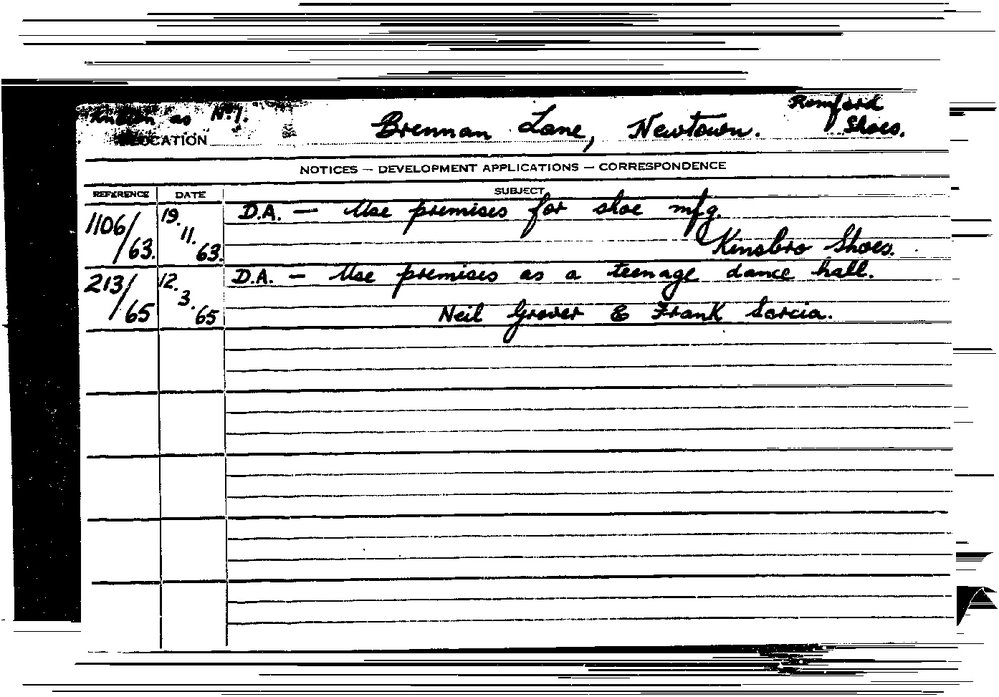 Known as Nº1.
Romford
Shoes.
LOCATION Brennan Lane, Newtown.
NOTICES — DEVELOPMENT APPLICATIONS — CORRESPONDENCE
REFERENCE DATE SUBJECT
1106/63. 19.11.63. D.A. — Use premises for shoe mfg.
Kinsbro Shoes.
213/65 12.3.65 D.A. — Use premises as a teenage dance hall.
Neil Grover & Frank Sarcia.